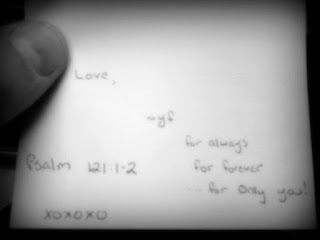 Love,
~yf
for always
Psalm 121:1-2 for forever
....for only you!
xoxoxo